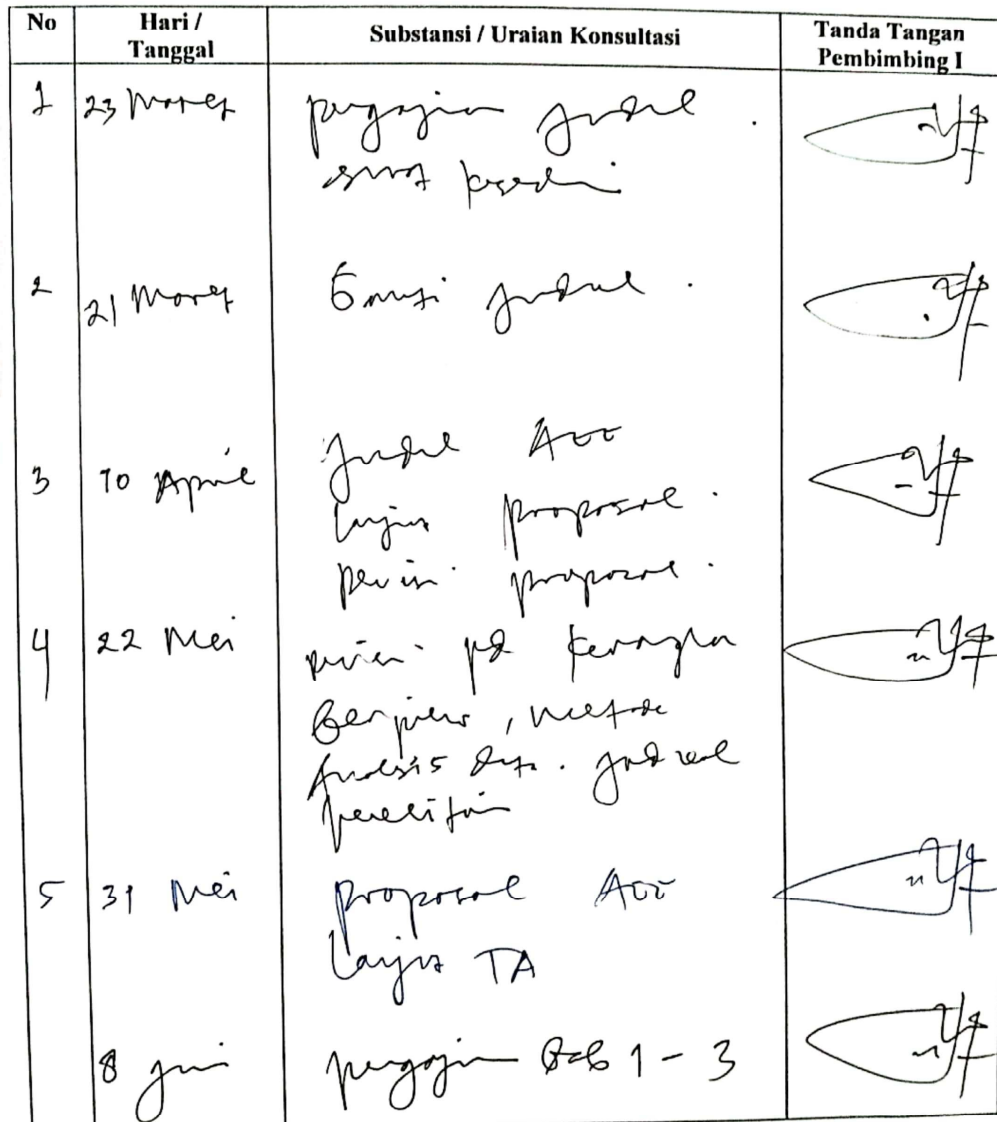 No Hari / Tanggal Substansi / Uraian Konsultasi Tanda Tangan Pembimbing I
1 23 Maret pengajuan judul
surat
2 21 Maret judul
3 10 April Judul Acc
Lanjut proposal
revisi proposal
4 22 Mei revisi pd kerangka
Berpikir, metode
Analisis data. jadwal
penelitian
5 31 Mei Proposal Acc
Lanjut TA
8 Juni pengajuan Bab 1 - 3